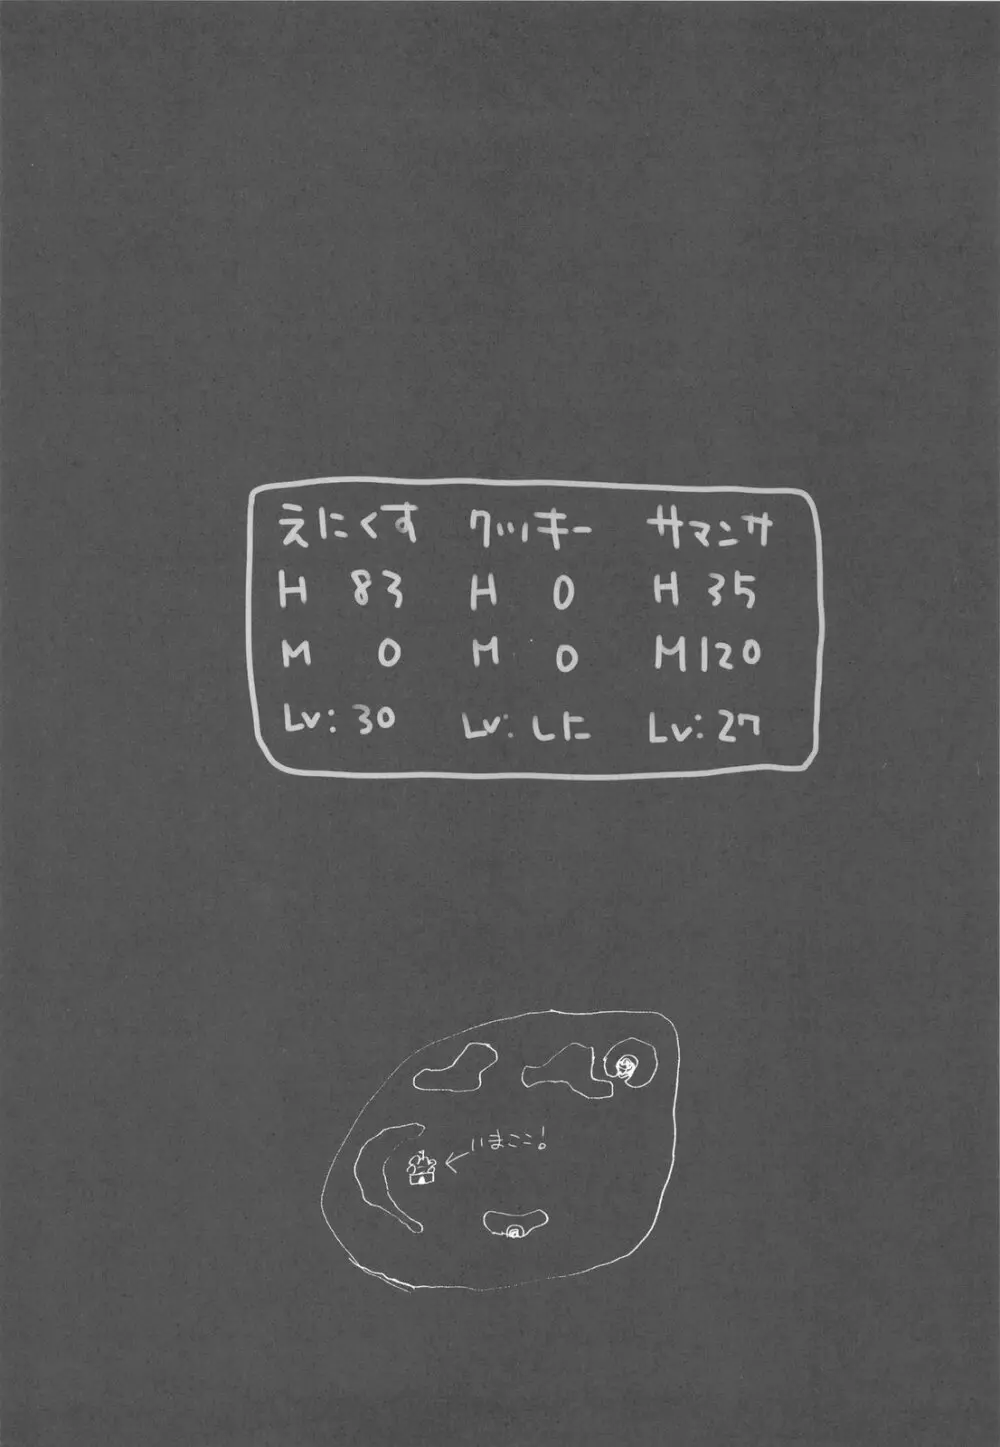 えにくす クッキー サマンサ
H 83 H 0 H 35
M 0 M 0 M120
Lv: 30 Lv: しに Lv: 27
いまここ!